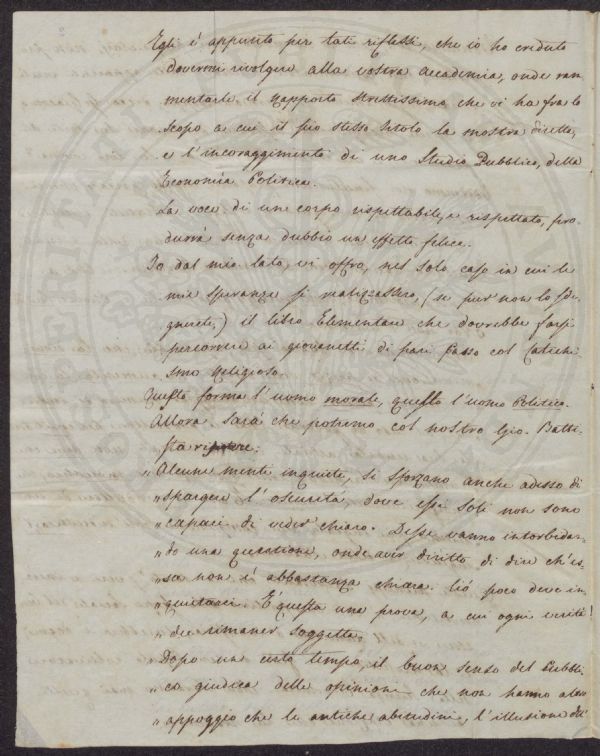 Egli è appunto per tali riflessi, che io ho creduto
dovermi rivolgere alla vostra Accademia, onde ram
mentarle il rapporto strettissimo che vi ha fra lo
scopo a cui il suo stesso titolo la mostra diretta,
e l'incoraggimento di uno Studio Pubblico, della
Economia Politica.
La voce di un corpo rispettabile, e rispettato, pro-
durrà senza dubbio un effetto felice.
Io dal mio lato, vi offro, nel solo caso in cui le
mie speranze si realizzassero, (se pur non lo sde-
gnerete,) il libro Elementare che dovrebbe farsi
percorrere ai giovanetti di pari passo col Catechi
smo Religioso.
Questo forma l'uomo morale, quello l'uomo Politico.
Allora sarà che potremo col nostro Gio. Batti-
sta
„ Alcune menti inquiete, si sforzano anche adesso di
„ spargere l'oscurità, dove essi soli non sono
„ capaci di veder chiaro. Desse vanno intorbidan-
„ do una questione, onde aver diritto di dire ch'es-
„ sa non è abbastanza chiara. Ciò poco deve in-
„ quietarci. È questa una prova, a cui ogni verità
„ dee rimaner soggetta.
„ Dopo un certo tempo, il buon senso del Pubbli-
„ co giudica delle opinioni che non hanno altro
„ appoggio che le antiche abitudini, l'illusione del